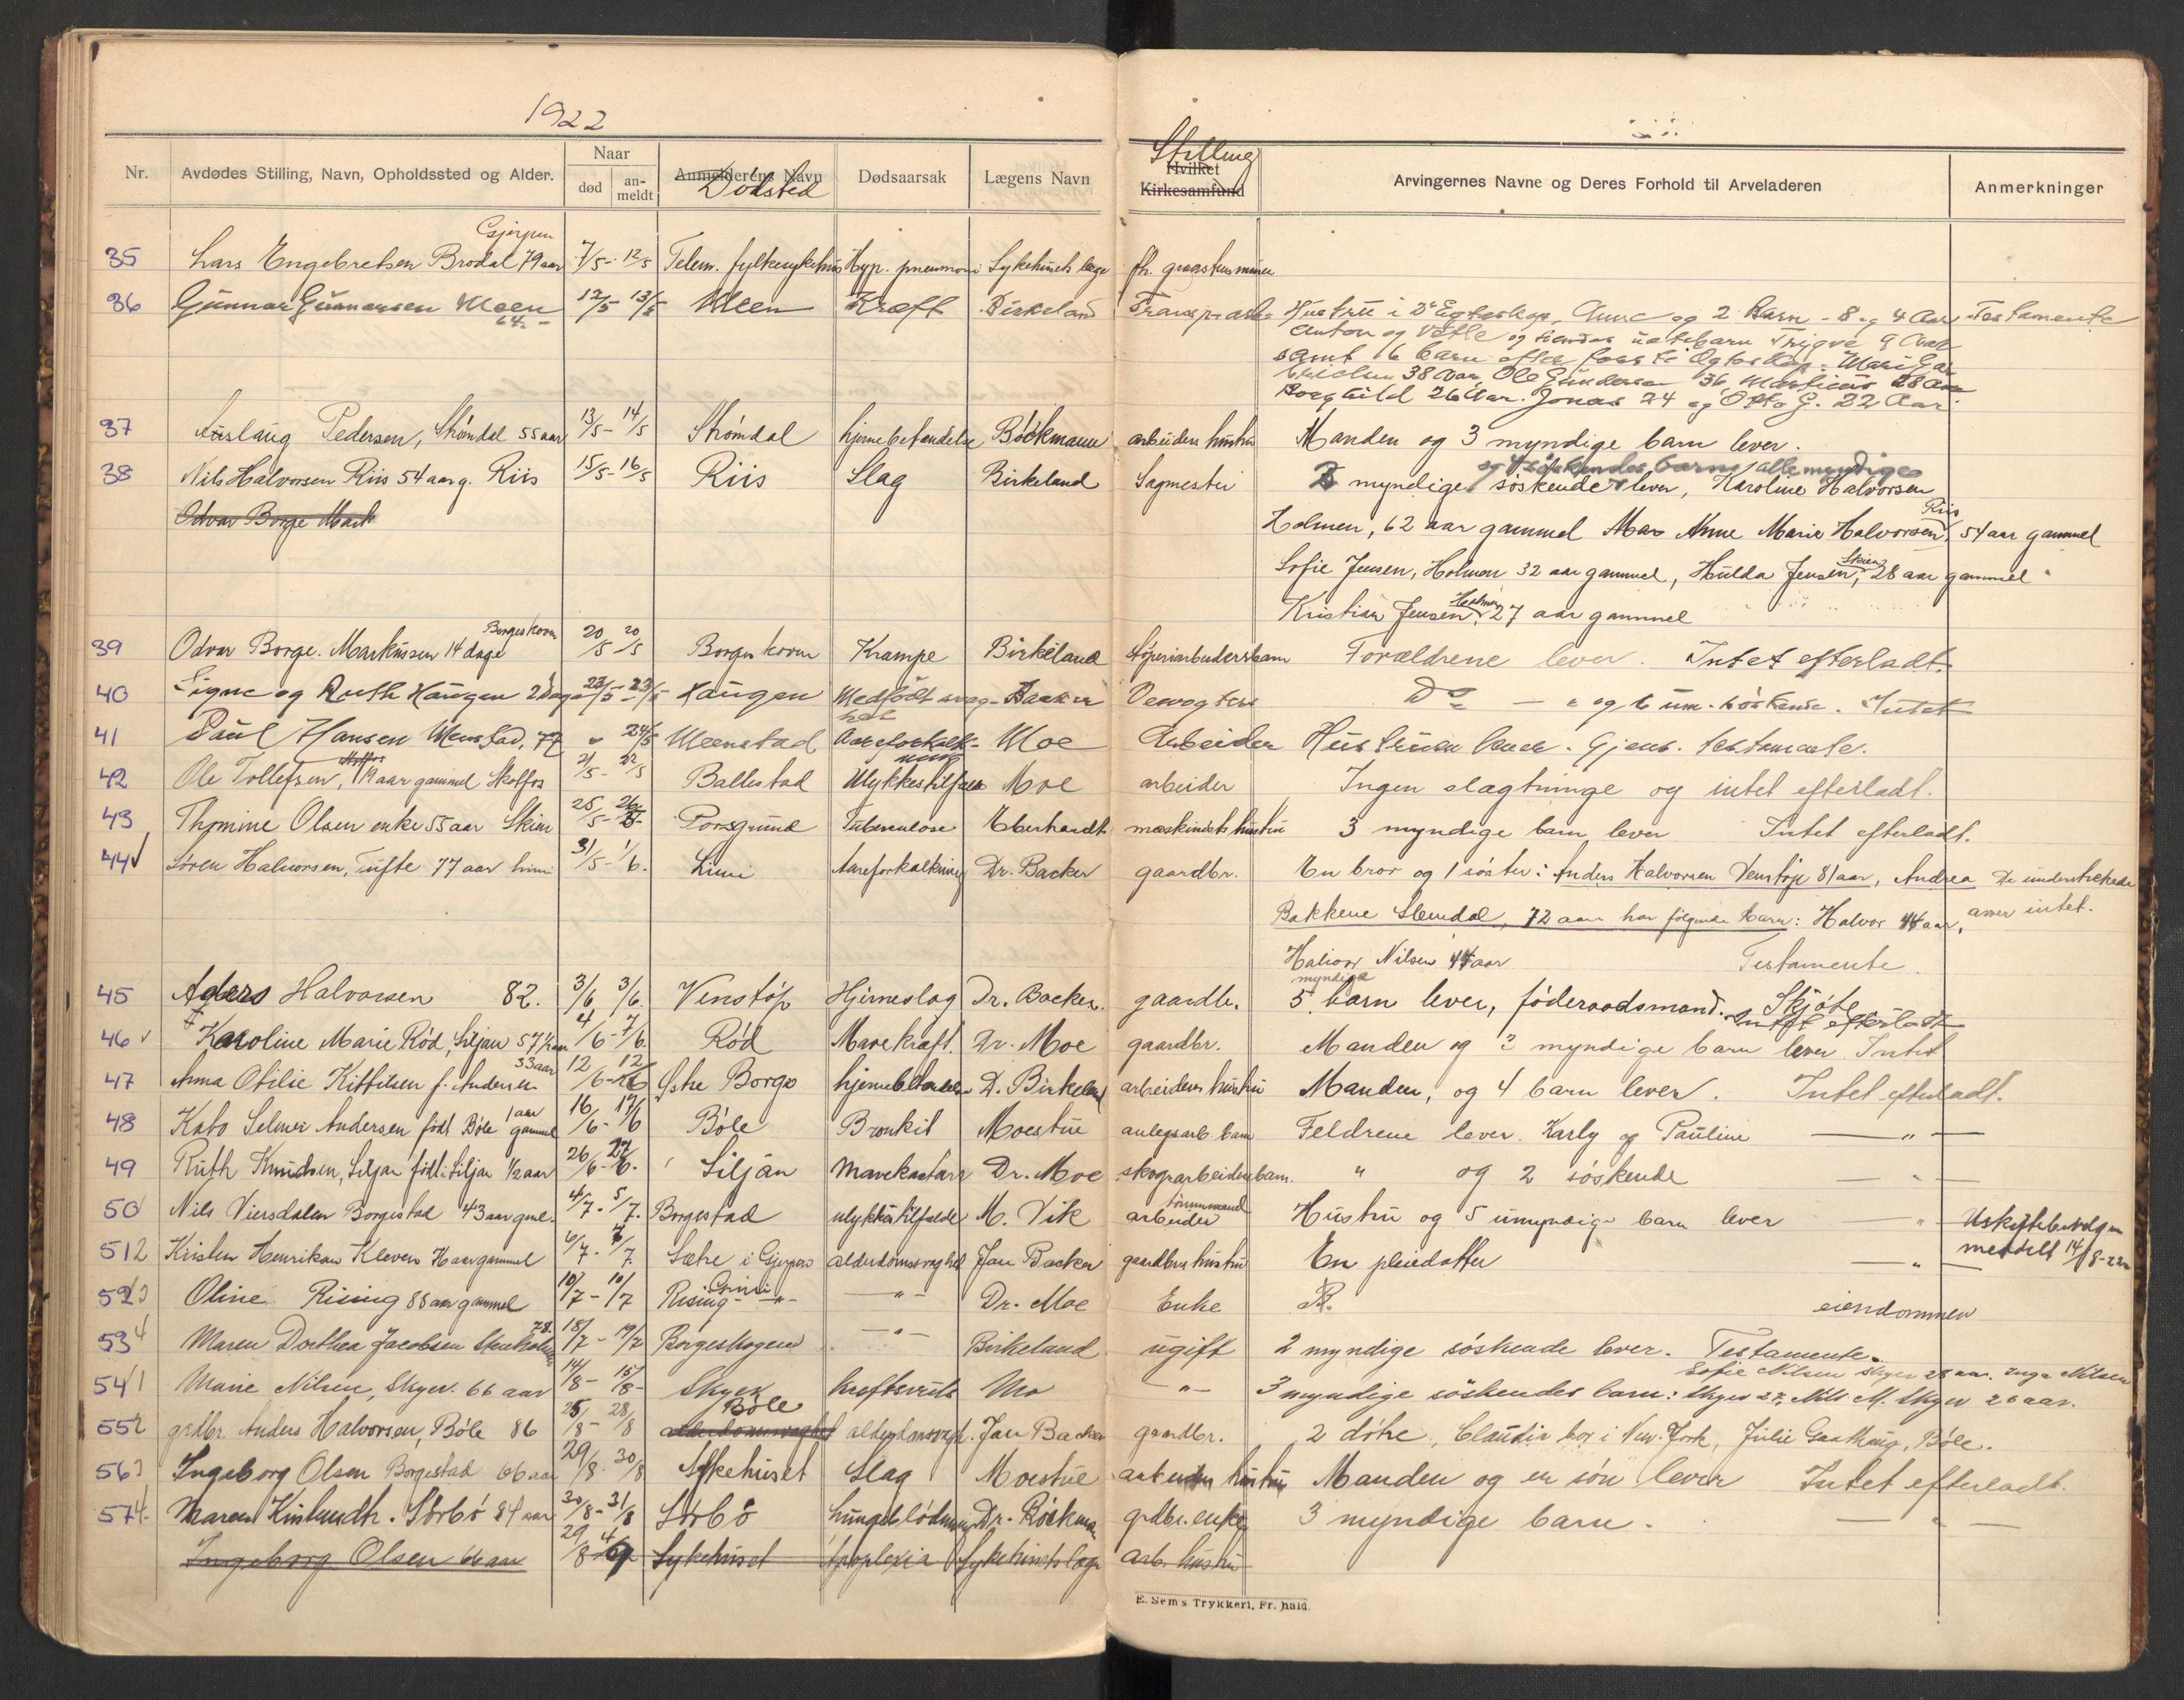 1922
Nr. Avdødes Stilling, Navn, Opholdssted og Alder. Naar død an-meldt Anmelderens Navn Dødsted Dødsaarsak Lægens Navn Stilling Hvilket Kirkesamfund Arvingernes Navne og Deres Forhold til Arveladeren Anmerkninger
Gjerpen
35 Lars Engebretsen Brodal 79 aar 7/5 - 12/5 Telem. fylkesykehus Hyp. pneumoni Sykehusets læge fh.
36 Gunnar Gunnarsen Meen 64 - 12/5 - 13/5 Meen Kræft Birkeland Hustru i 2 Egteskap, Anne og 2 Barn - 8 og 4 Aar Testamente
Anton og Vetle og hendes Trygve 9 Aar
samt 6 barn efter første Egteskap. Mari
38 Aar, Ole Gundersen 36, Martinius 28 Aar
Borghild 26 Aar. Jonas 24 og Otto G. 22 Aar.
37 Aaslaug Pedersen, Strømdal 55 aar 13/5 - 14/5 Strømdal hjernebetændelse Böckmann arbeiders hustru Manden og 3 myndige barn lever.
og søskendes barn, alle myndige
38 Nils Halvorsen Riis 54 aar g. Riis 15/5 - 16/5 Riis Slag Birkeland Sagmester 2 myndige søskende lever, Karoline Halvorsen
Odvar Borge Mark
Holmen, 62 aar gammel Anne Marie Halvorsen, Riis 54 aar gammel
Sofie Jensen, Holmen 32 aar gammel, Hulda Jensen, Skien 28 aar gammel
Kristian Jensen, Holmen 27 aar gammel
39 Odvar Borge. Markussen 14 dage Borgeskoven 20/5 20/5 Borgeskoven Krampe Birkeland Støperiarbeiders barn Forældrene lever. Intet efterladt.
40 Signe og Ruth Haugen 2 dage 23/5 - 23/5 Haugen Medfødt svaghet Backer Do - " og 6 um. søskende. Intet
41 Paul Hansen Menstad, 77 " 24/5 Menstad Aareforkalkning Moe Arbeider Hustruen lever. Gjens. testamente.
42 Ole Tollefsen, 19 aar gammel Skotfos 21/5 - 22/5 Ballestad Ulykkestilfælde Moe arbeider Ingen slægtninge og intet efterladt.
43 Thomine Olsen enke 55 aar Skien 25/5 - 26/5 Porsgrund Tuberculose Eberhardt maskinists hustru 3 myndige barn lever Intet efterladt.
44 Søren Halvorsen, Tufte 77 aar Limi 31/5 - 1/6. Limi Aareforkalkning Dr. Backer gaardbr. En bror og 1 søster: Anders Halvorsen Venstøp 81 aar, Andrea De understrekede
Bakkene Slemdal, 72 aar har følgende barn: Halvor 44 aar, arver intet.
Halvor Nilsen 44 aar Testamente.
45 Anders Halvorsen 82. 3/6 3/6. Venstøp Hjerneslag Dr. Backer. gaardbr. 5 myndige barn lever, føderaadsmand. Skjøte
46 Karoline Marie Rød, Siljan 57 1/2 aar 4/6 - 7/6. Rød Mavekræft. Dr. Moe gaardbr. Manden og 3 myndige barn lever. Intet efterladt
47 Anna Otilie Kittilsen f. Andersen 33 aar 12/6 - 12/6 Østre Borge hjernebetændelse D. Birkeland arbeiders hustru Manden, og 4 barn lever. Intet efterladt.
48 Kato Selmer Andersen født Bøle 1 aar gammel 16/6 - 17/6 Bøle Bronkit Moestue anlegsarb. barn Feldrene lever. Karly og Pauline - " -
49 Ruth Knudsen, Siljan født: Siljan 1/2 aar 26/6 - 27/6. Siljan Mavekatarr Dr. Moe skogsarbeiders barn. " og 2 søskende - " -
50 Nils Viersdalen Borgestad 43 aar gml. 4/7 - 5/7. Borgestad ulykkestilfælde M. Vik arbeider Hustru og 5 umyndige barn lever - " - Uskiftebevilgn
meddelt 14/8-22
512 Kristen Henriksen Kleven gammel 6/7 - 7/7. Sætre i Gjerpen alderdomssvaghet Jan Backer gaardbrs hustru En pleiedatter - " -
523 Oline Rising 88 aar gammel 10/7 - 10/7 Rising Limi - " - Dr. Moe Enke eiendommen
534 Maren Dorthea Jacobsen 78 18/7 - 19/7 Borgeskogen - " - Birkeland ugift 2 myndige søskende lever. Testamente.
Sofie Nilsen Skyer 28 aar. Inga Nilsen
541 Marie Nilsen, Skyer. 66 aar 14/8 - 15/8 - Skyer Mo - " - 3 myndige søskendes barn: Skyer 27, Nils M. Skyer 26 aar.
552 grdbr. Anders Halvorsen, Bøle 86 25/8 - 28/8 Bøle alderdomssvaghet alderdomssvagh. Jan Backer gaardbr. 2 døtre, Claudia bor i New. York, Julie Gaathaug, Bøle.
563 Ingeborg Olsen Borgestad 66 aar 29/8 - 30/8 Sykehuset Slag Moestue arbeiders hustru Manden og en søn lever Intet efterladt.
574 Maren Knudsdtr. Sørbø 84 aar 30/8 - 31/8 Sørbø Dr. Böckman grdbr. enke 3 myndige barn. - " -
Ingeborg Olsen 66 aar 29/8 4/9 Sykehuset Apoplexia Sykehusets læge arb. hustru
E. Sem's Trykkeri, Fr.hald.